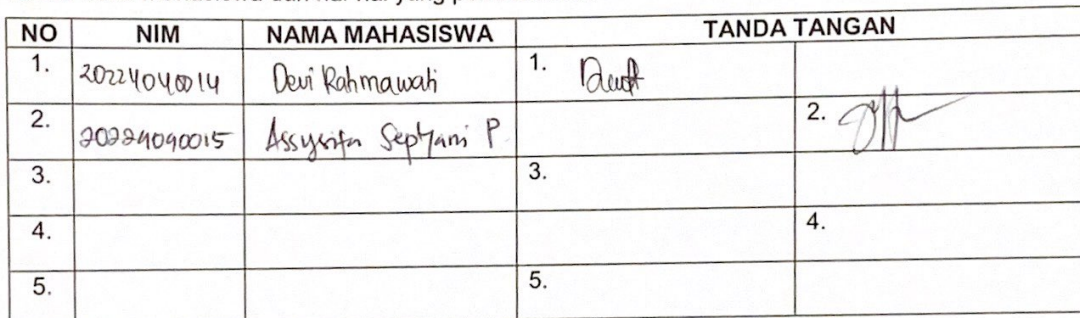 NO NIM NAMA MAHASISWA TANDA TANGAN
1. 20224040014 Devi Rahmawati 1.
2. 20224040015 Assysifa Septiani P. 2.
3. 3.
4. 4.
5. 5.